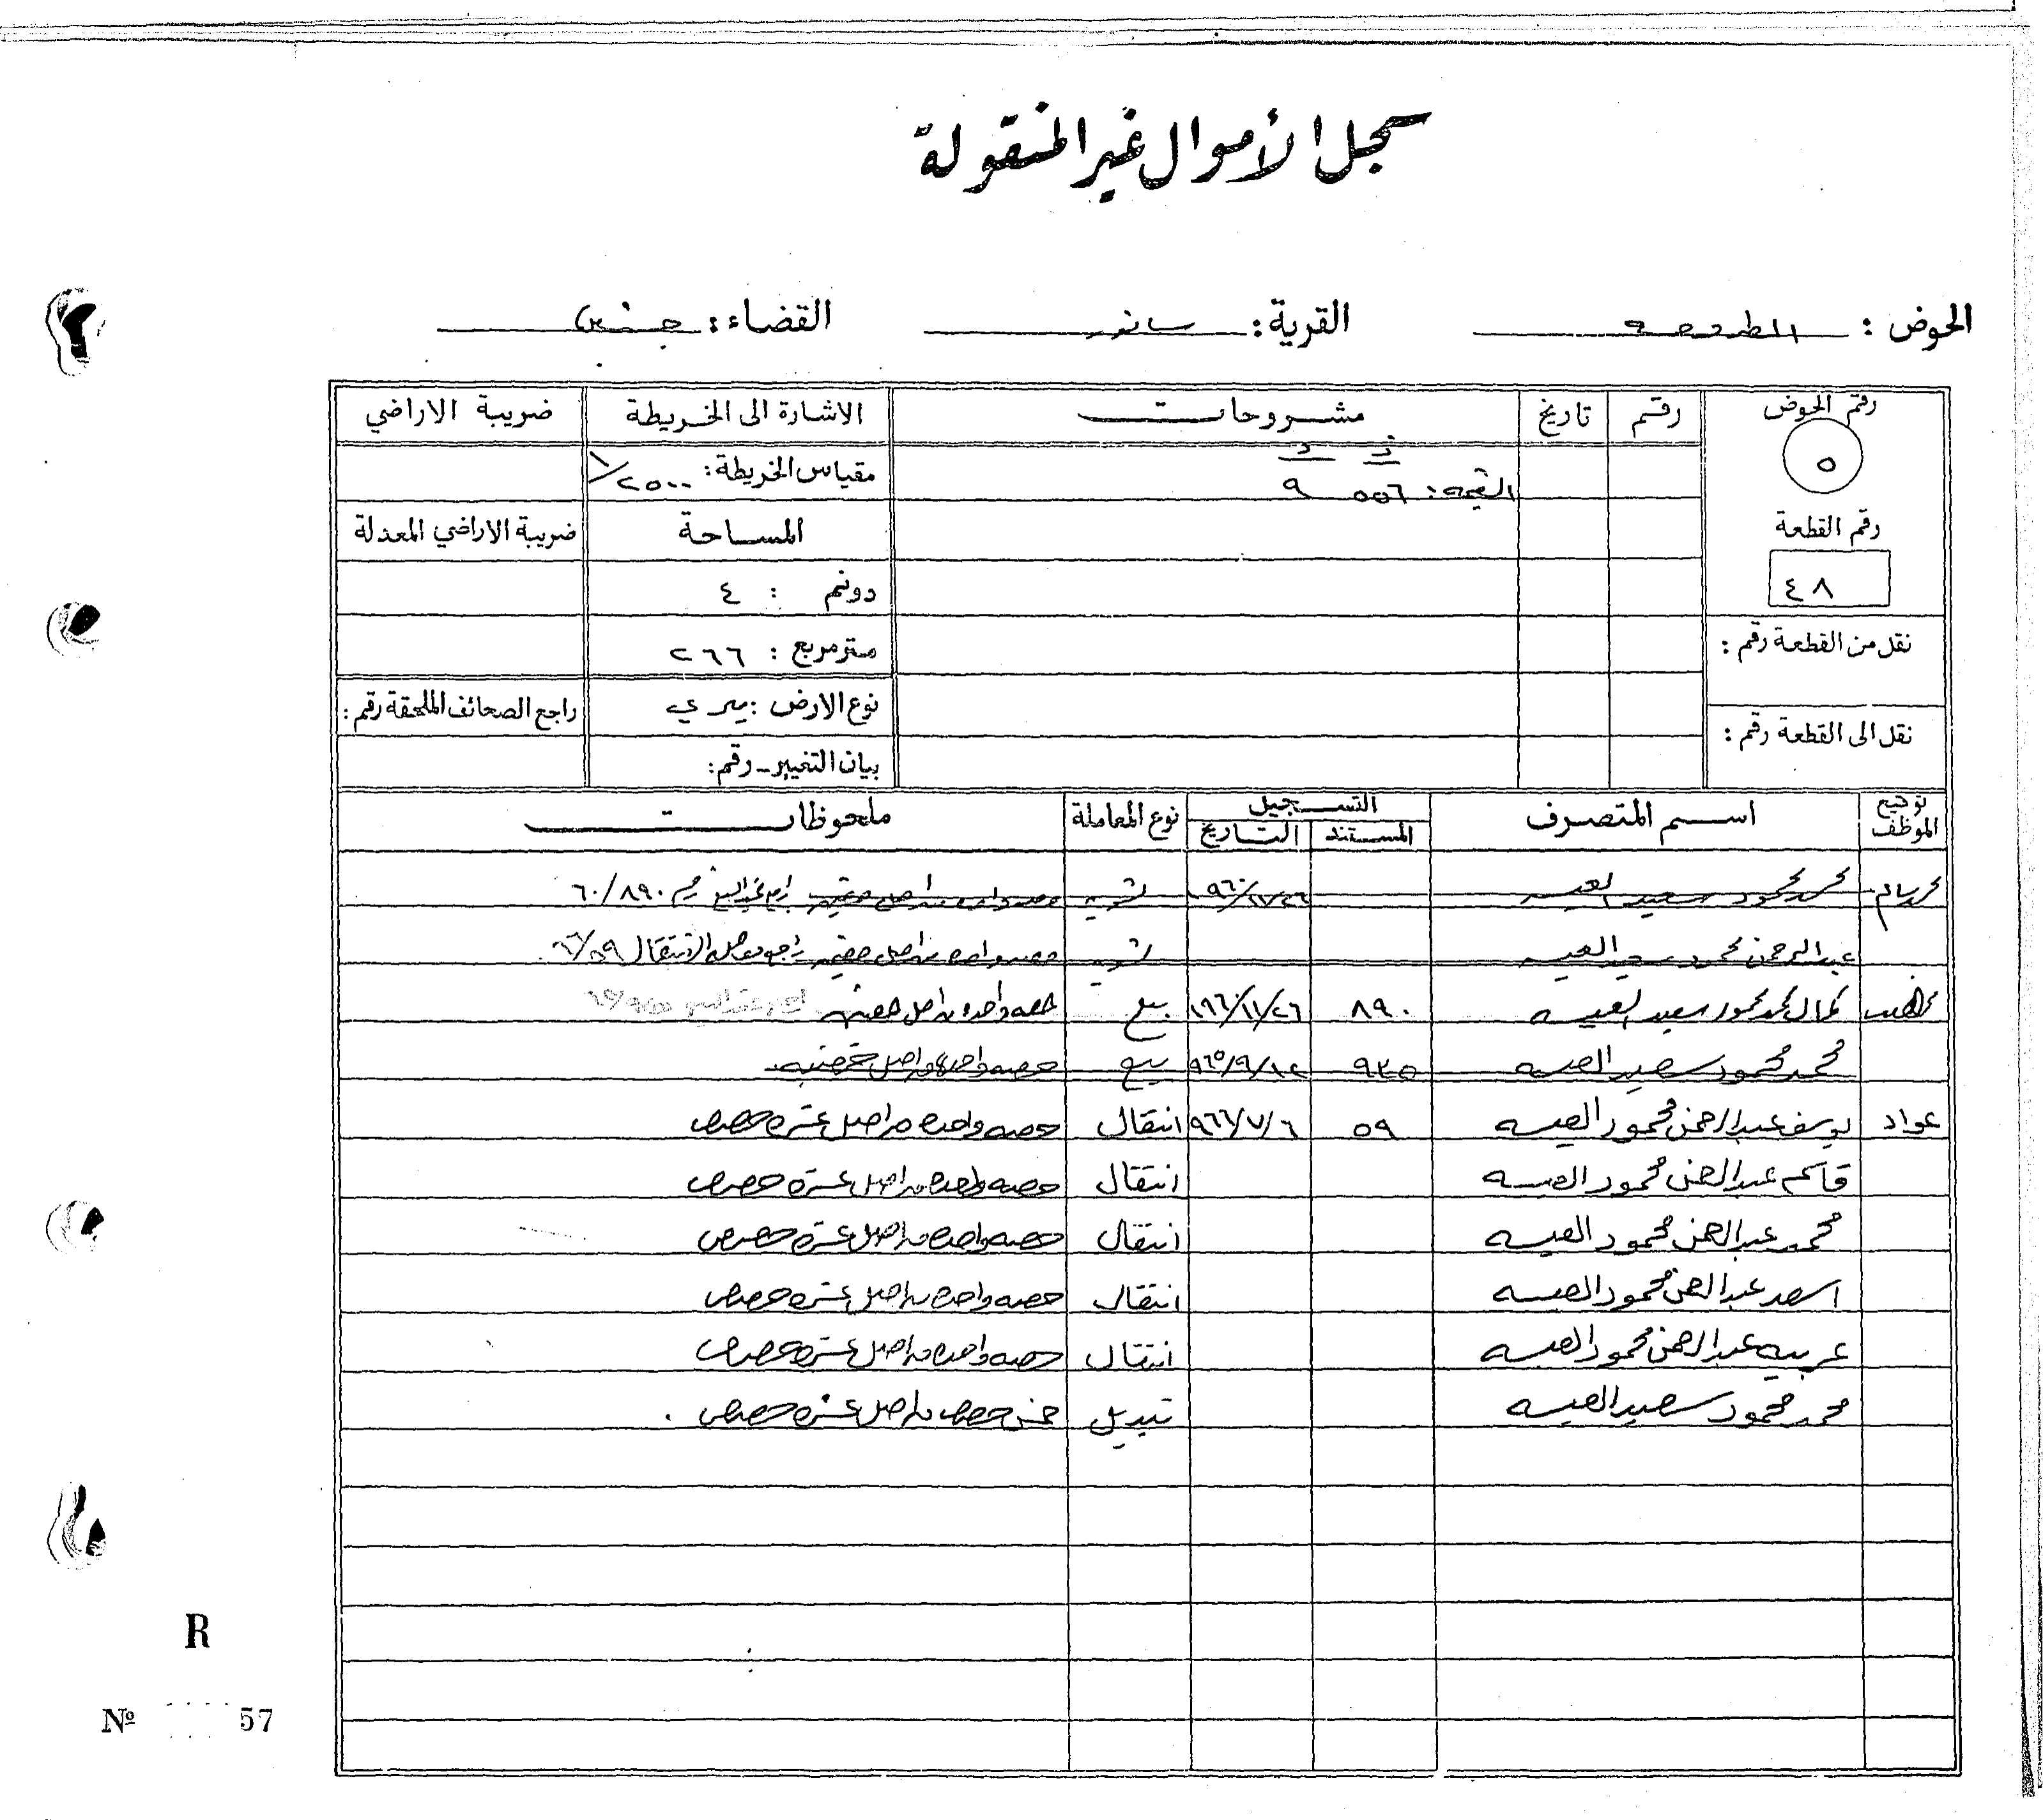 سجل الأموال غير المنقولة
الحوض : القرية : سانور القضاء : جنين
رقم الحوض رقم تاريخ مشروحات الاشارة الى الخريطة ضريبة الاراضي
٥
ف د
القيمه : ٥٥٦ ٩
مقياس الخريطة : ١/٢٥٠٠
رقم القطعة المساحة ضريبة الاراضي المعدلة
٤٨
دونم : ٤
نقل من القطعة رقم : مترمربع : ٢٦٦
نوع الارض : ميري راجع الصحائف الملحقة رقم :
نقل الى القطعة رقم :
بيان التغيير - رقم :
توقيع الموظف اسم المتصرف التسجيل نوع المعاملة ملحوظات
المستند التاريخ
محمد محمود سعيد العيسه تسويه حصه واحده من اصل حصتين رقم ٦٠/٨٩٠
عبدالرحمن محمود سعيد العيسه تسويه حصه واحده من اصل حصتين الانتقال ٦٦/٥٩
كمال محمد محمود سعيد العيسه ٨٩٠ بيع حصه واحده من اصل حصتين
محمد محمود سعيد العيسه ٩٣٥ ٩٦٥/٩/١٢ بيع حصه واحده من اصل حصتين
عواد يوسف عبدالرحمن محمود العيسه ٥٩ ٩٦٦/٧/٦ انتقال حصه واحده من اصل عشره حصص
قاسم عبدالرحمن محمود العيسه انتقال حصه واحده من اصل عشره حصص
محمد عبدالرحمن محمود العيسه انتقال حصه واحده من اصل عشره حصص
اسعد عبدالرحمن محمود العيسه انتقال حصه واحده من اصل عشره حصص
عربيه عبدالرحمن محمود العيسه انتقال حصه واحده من اصل عشره حصص
محمد محمود سعيد العيسه تبديل خمس حصص من اصل عشره حصص .
R
№ 57